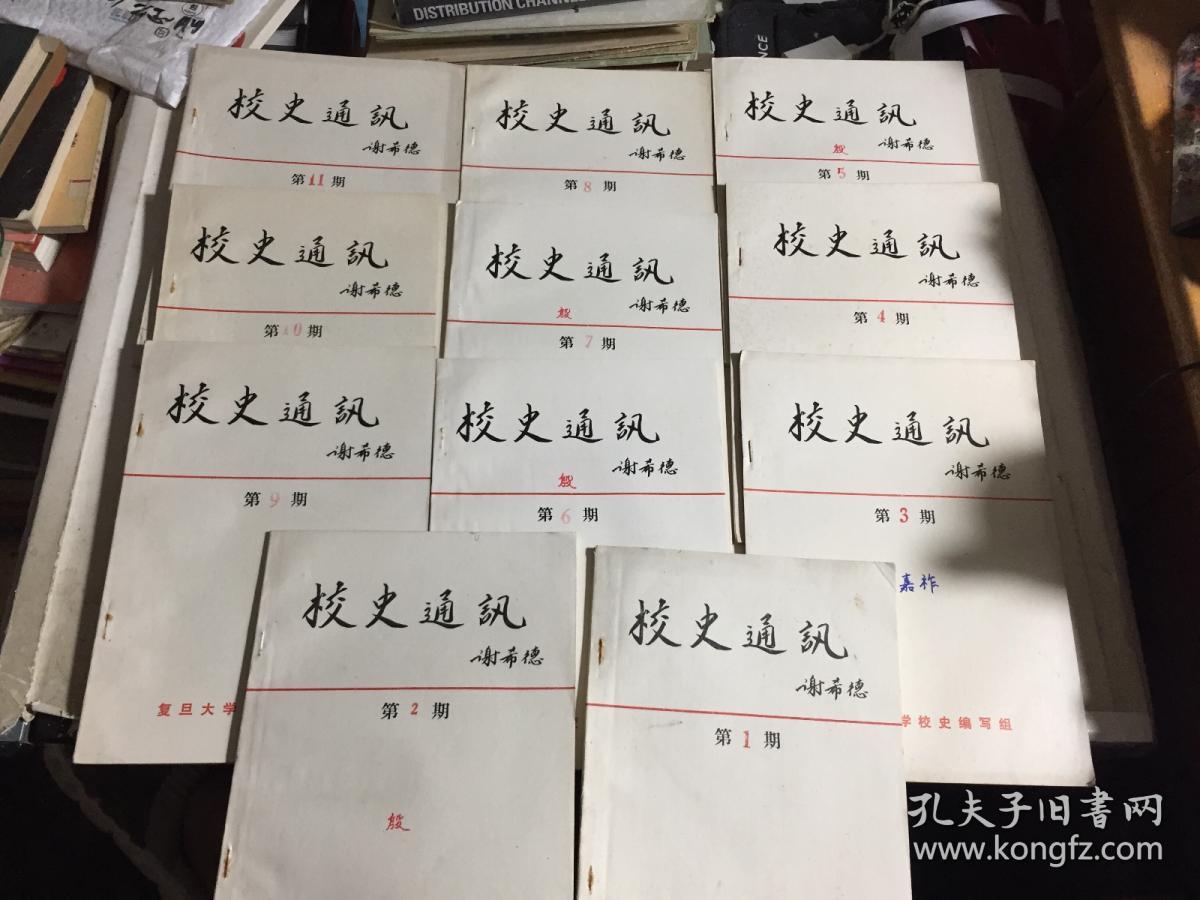 DISTRIBUTION CHANNE
校史通訊
谢希德
第11期
校史通訊
谢希德
第8期
校史通訊
殷 谢希德
第5期
校史通訊
谢希德
第10期
校史通訊
殷 谢希德
第7期
校史通訊
谢希德
第4期
校史通訊
谢希德
第9期
复旦大学
校史通訊
谢希德
殷
第6期
校史通訊
谢希德
第3期
嘉祚
学校史编写组
校史通訊
谢希德
第2期
殷
校史通訊
谢希德
第1期
孔夫子旧書网
www.kongfz.com